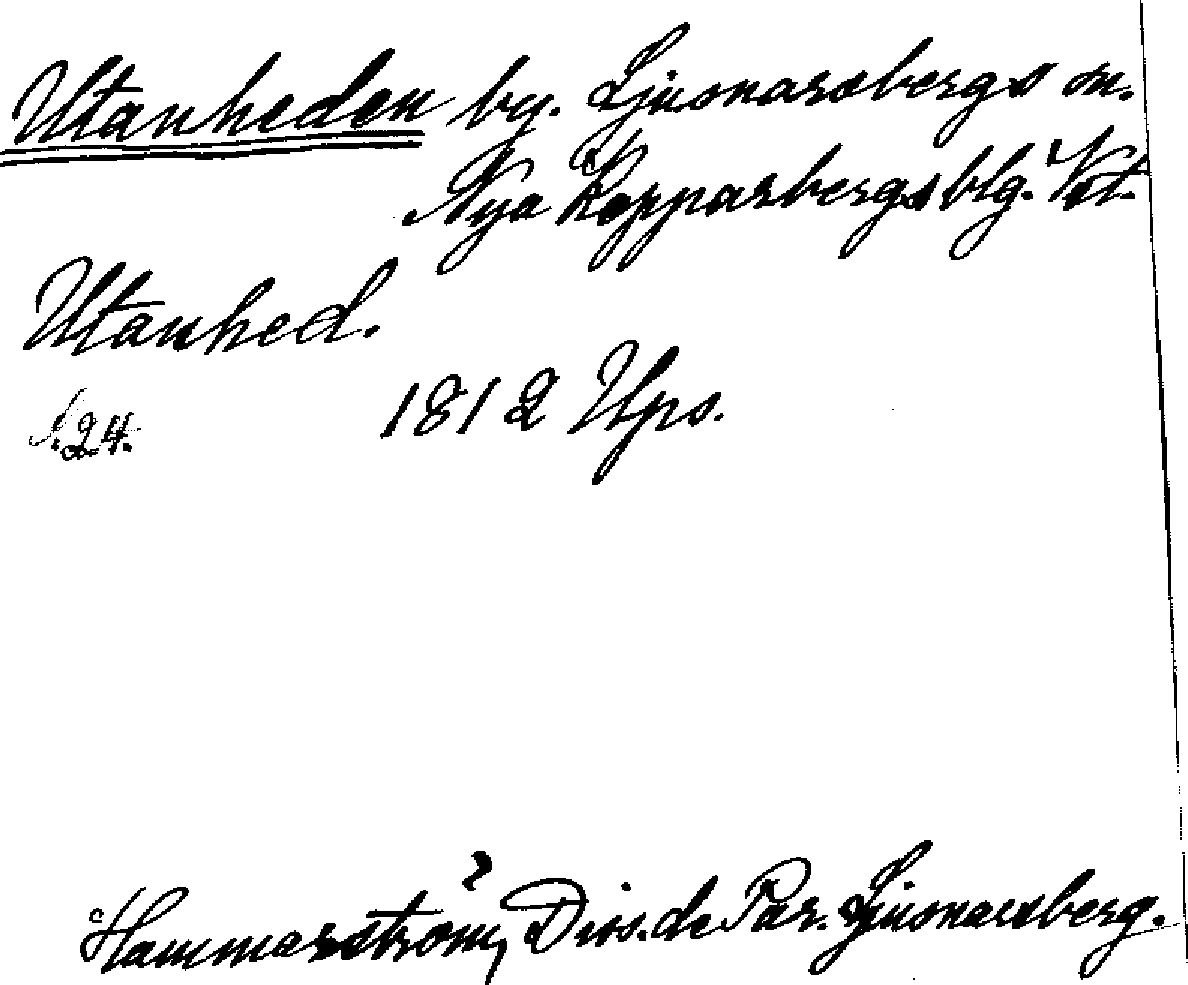 Utanheden by. Ljusnarsbergs sn.
Nya Kopparbergs blg. Vst.
Utanhed.
s. 24. 1812 Ups.
Hammarström, Diss. de Par. Ljusnarsberg.